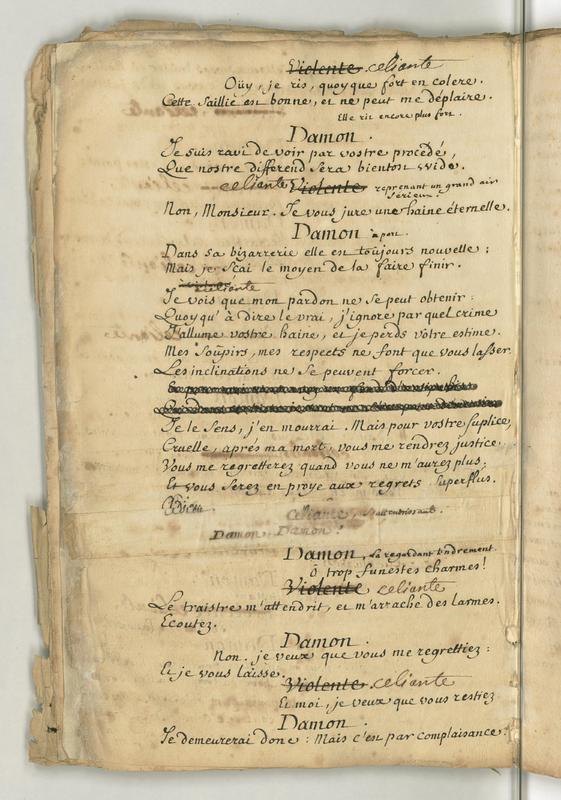 Violente. celiante
Oüy, je ris, quoyque fort en colere.
Cette saillie est bonne, et ne peut me déplaire.
Elle rit encore plus fort.
Damon.
Je suis ravi de voir par vostre procedé,
Que nostre differend sera bientost vuidé.
celiante Violente reprenant un grand air
serieux.
Non, Monsieur. Je vous jure une haine éternelle.
Damon apart.
Dans sa bizarrerie elle est toujours nouvelle :
Mais je sçai le moyen de la faire finir.
à celiante
Je vois que mon pardon ne se peut obtenir :
Quoyqu'à dire le vrai, j'ignore par quel crime
J'allume vostre haine, et je perds vôtre estime.
Mes soûpirs, mes respects ne font que vous lasser.
Les inclinations ne se peuvent forcer.
Je le sens, j'en mourrai. Mais pour vostre suplice,
Cruelle, aprés ma mort, vous me rendrez justice,
Vous me regretterez quand vous ne m'aurez plus,
Et vous serez en proye aux regrets superflus.
Adieu.
Celiante, s'attendrissant.
Damon, Damon !
Damon, la regardant tendrement.
ô trop funestes charmes !
Violente celiante
Le traistre m'attendrit, et m'arrache des larmes.
Ecoutez.
Damon.
Non. je veux que vous me regrettiez :
Et je vous laisse.
Violente. celiante
Et moi, je veux que vous restiez
Damon.
Je demeurerai donc : Mais c'est par complaisance.